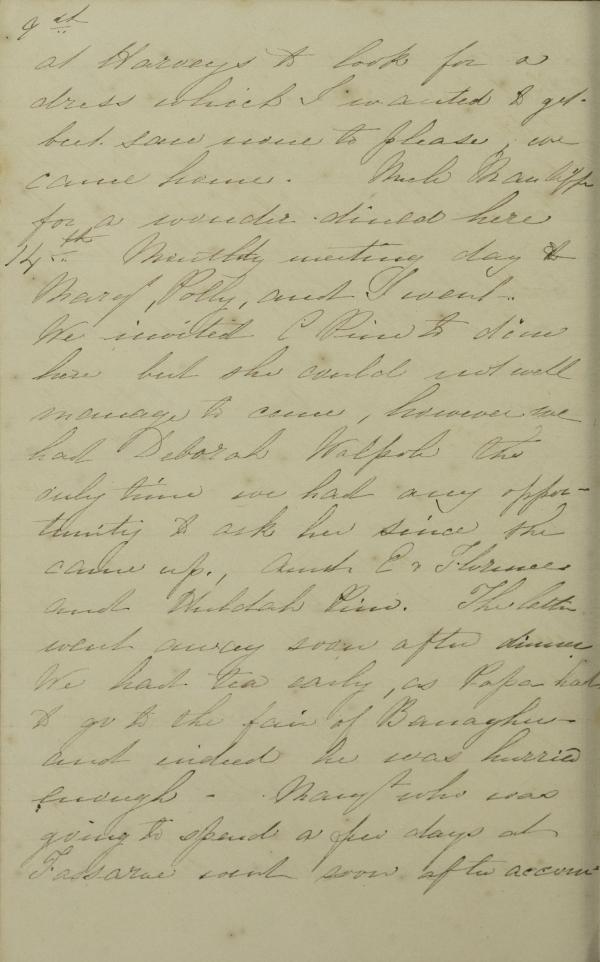 at Harveys to look for a
dress which I wanted to get.
but saw none to please, we
came home.
for a wonder dined here
14th Monthly meeting day &
Margt, Polly, and I went.
We invited C Pim to dine
here but she could not well
manage to come, however we
had Deborah Walpole the
only time we had any oppor-
tunity to ask her since she
came up., Aunt E & Florence
and Huldah Pim. The latter
went away soon after dinner
We had tea early, as Papa had
to go to the fair of Banagher
and indeed he was hurried
enough - Margt who was
going to spend a few days at
Fassaroe went soon after accom